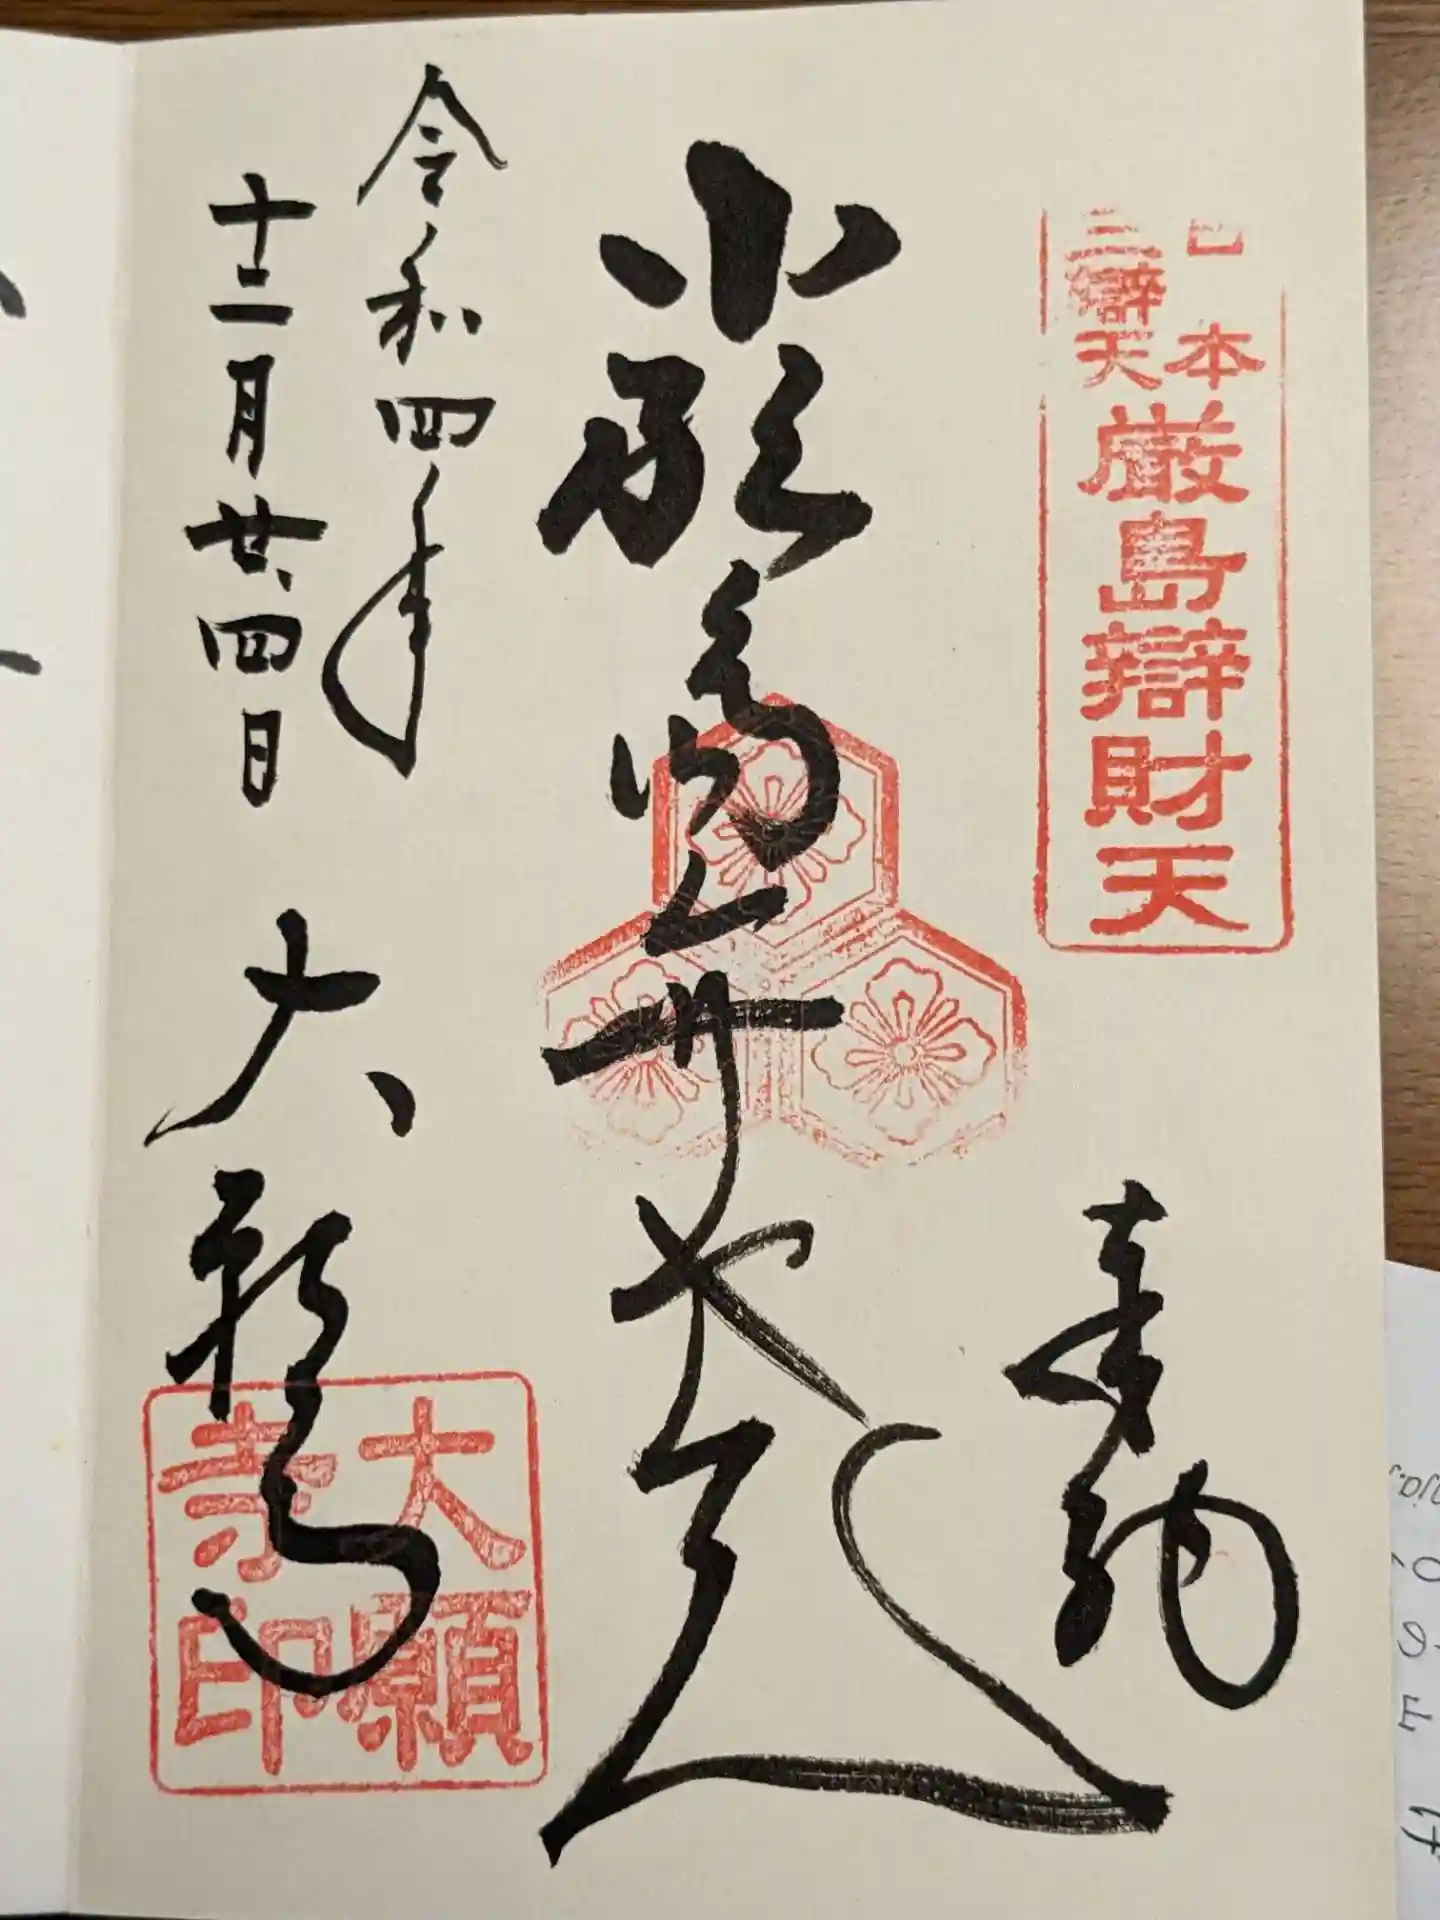 日本
三辯天
厳島辯財天
奉納
厳島弁財天
令和四年
十二月廿四日
大願寺
大願
寺印